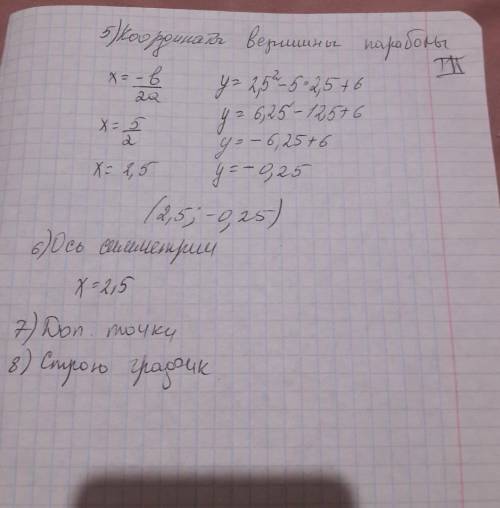 5) Координаты вершины параболы
III
x = -b/2a
y = 2,5² - 5·2,5 + 6
y = 6,25 - 12,5 + 6
x = 5/2
y = - 6,25 + 6
x = 2,5
y = - 0,25
(2,5; -0,25)
6) Ось симметрии
x = 2,5
7) Доп. точки
8) Строю график